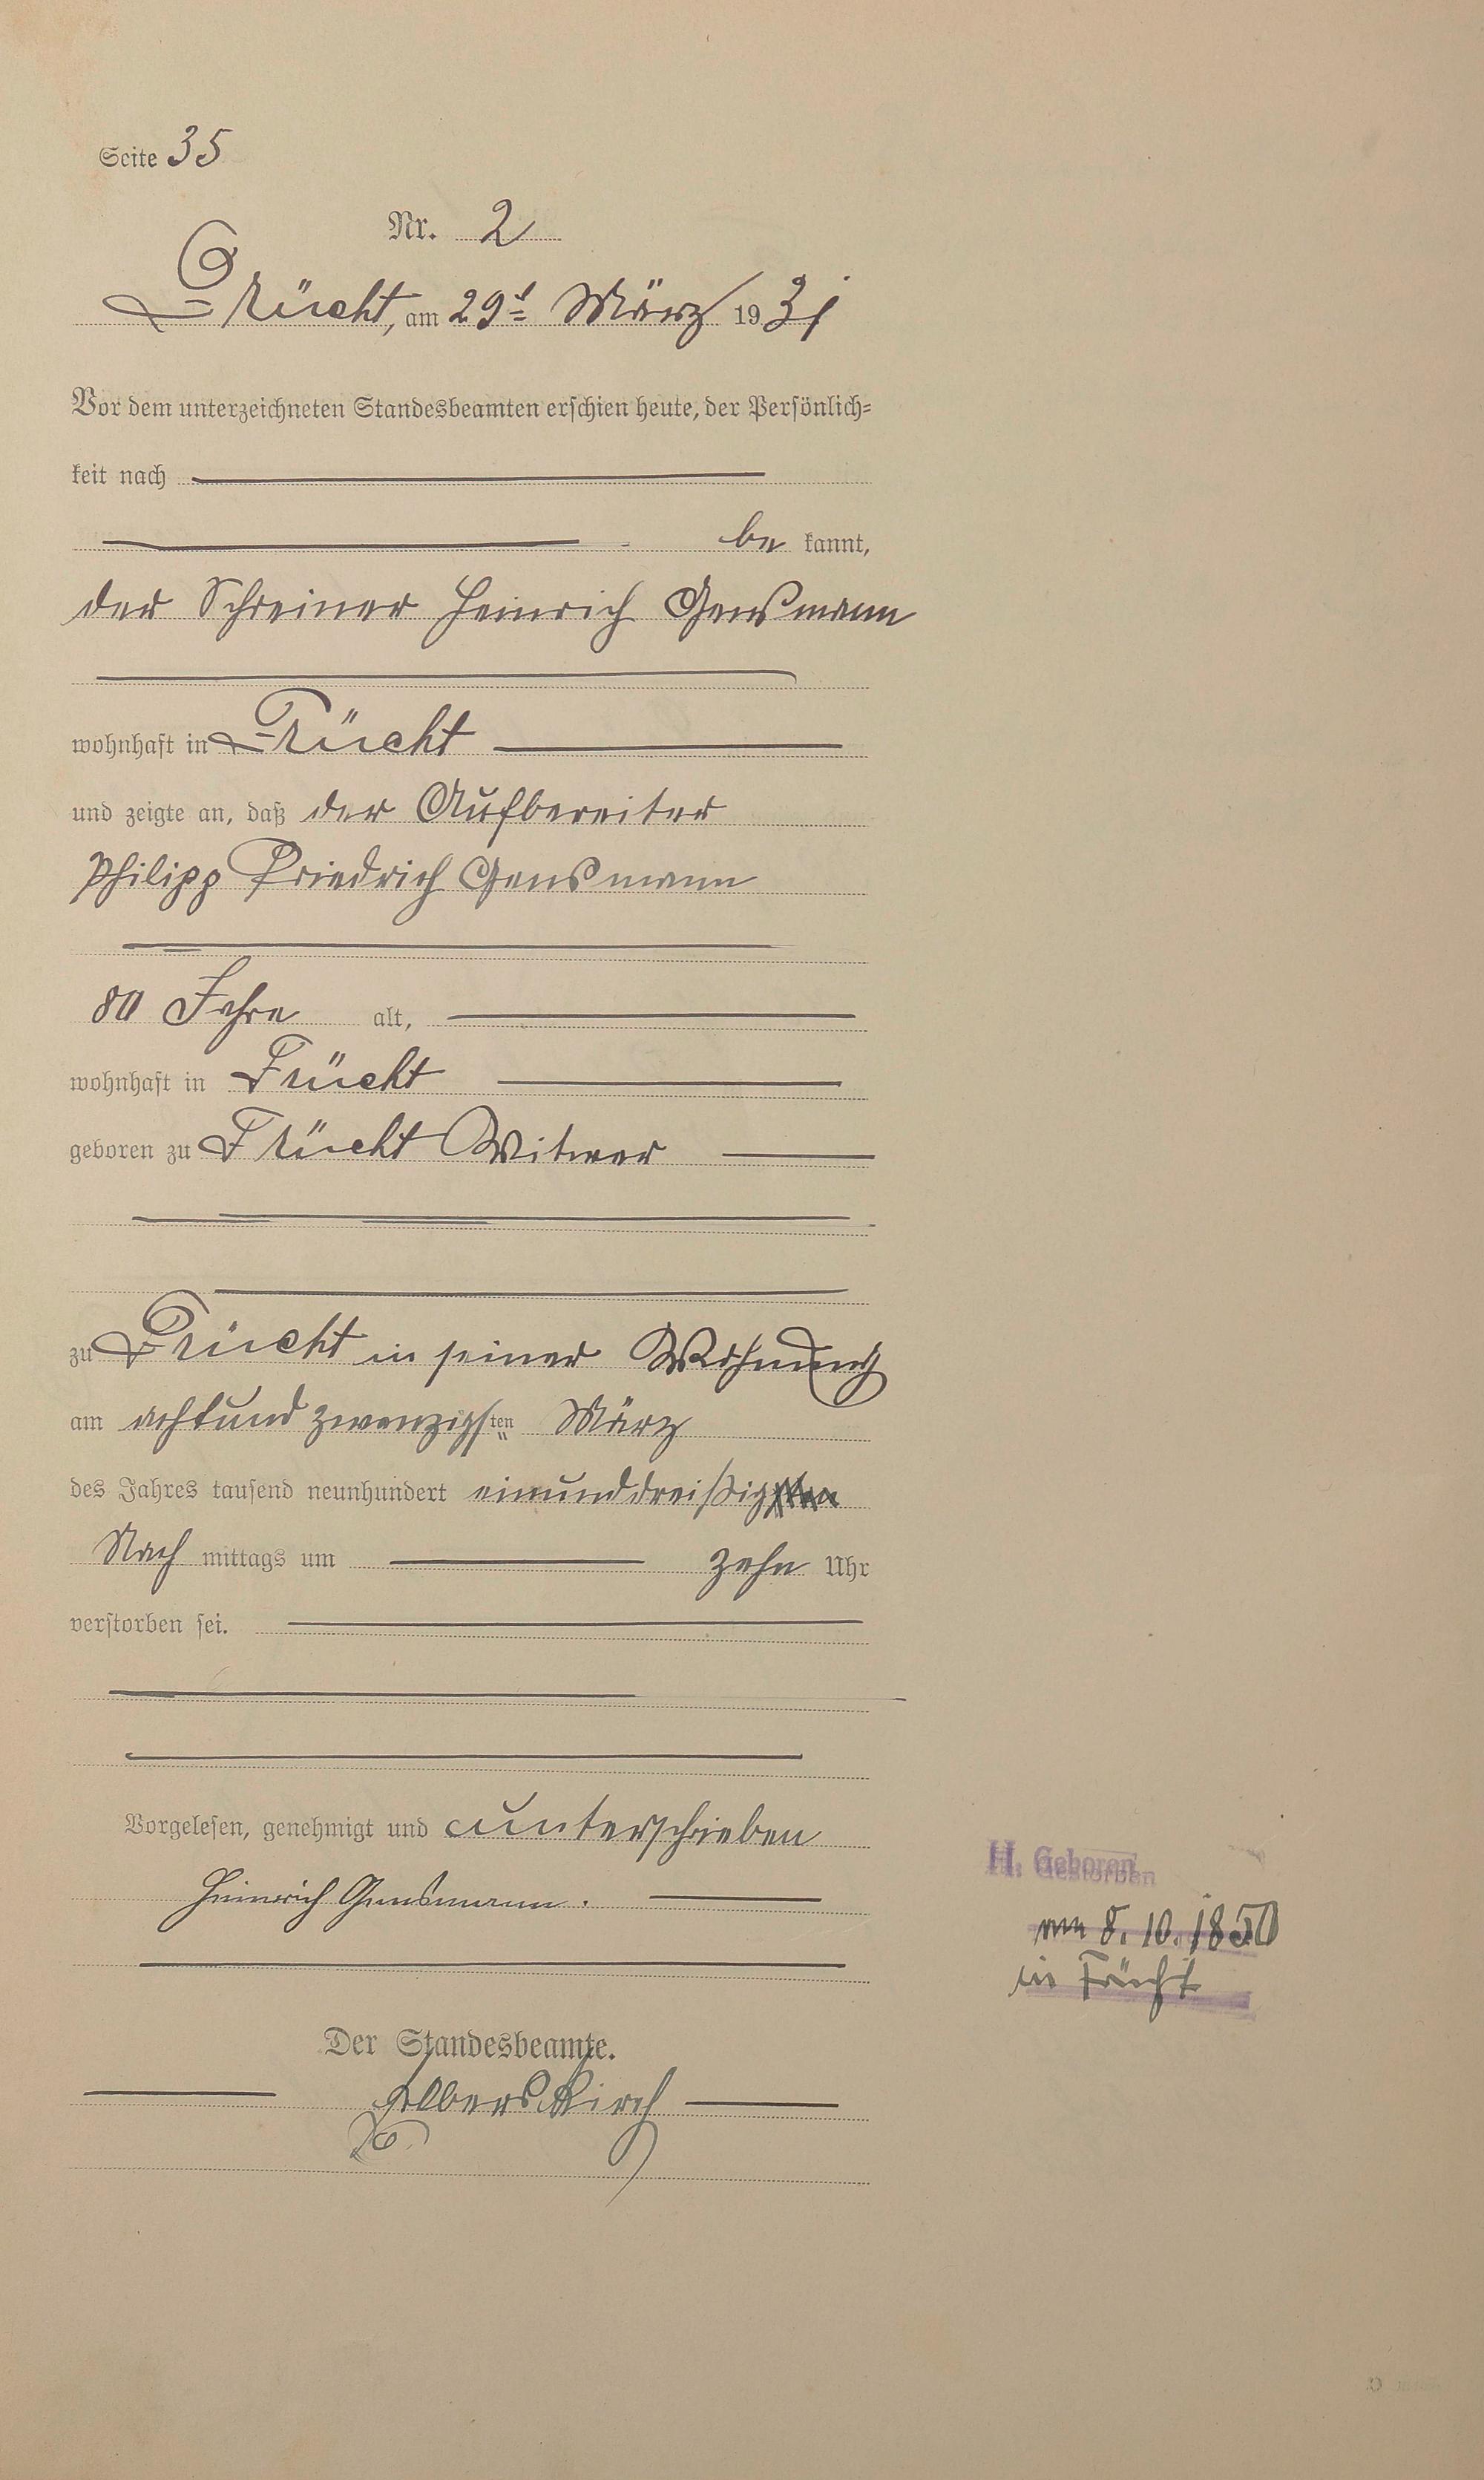 Seite 35
Nr. 2
Frücht, am 29t März 1931
Vor dem unterzeichneten Standesbeamten erschien heute, der Persönlich=
keit nach
be kannt,
der Schreiner Heinrich Gensmann
wohnhaft in Frücht
und zeigte an, daß der Aufbereiter
Philipp Friedrich Gensmann
80 Jahre alt,
wohnhaft in Frücht
geboren zu Frücht Witwer
zu Frücht in seiner Wohnung
am achtundzwanzigsten März
des Jahres tausend neunhundert einunddreißig
Nach mittags um zehn Uhr
verstorben sei.
Vorgelesen, genehmigt und unterschrieben
Heinrich Gensmann.
Der Standesbeamte.
H. Geboren
am 8. 10. 1850
in Frücht